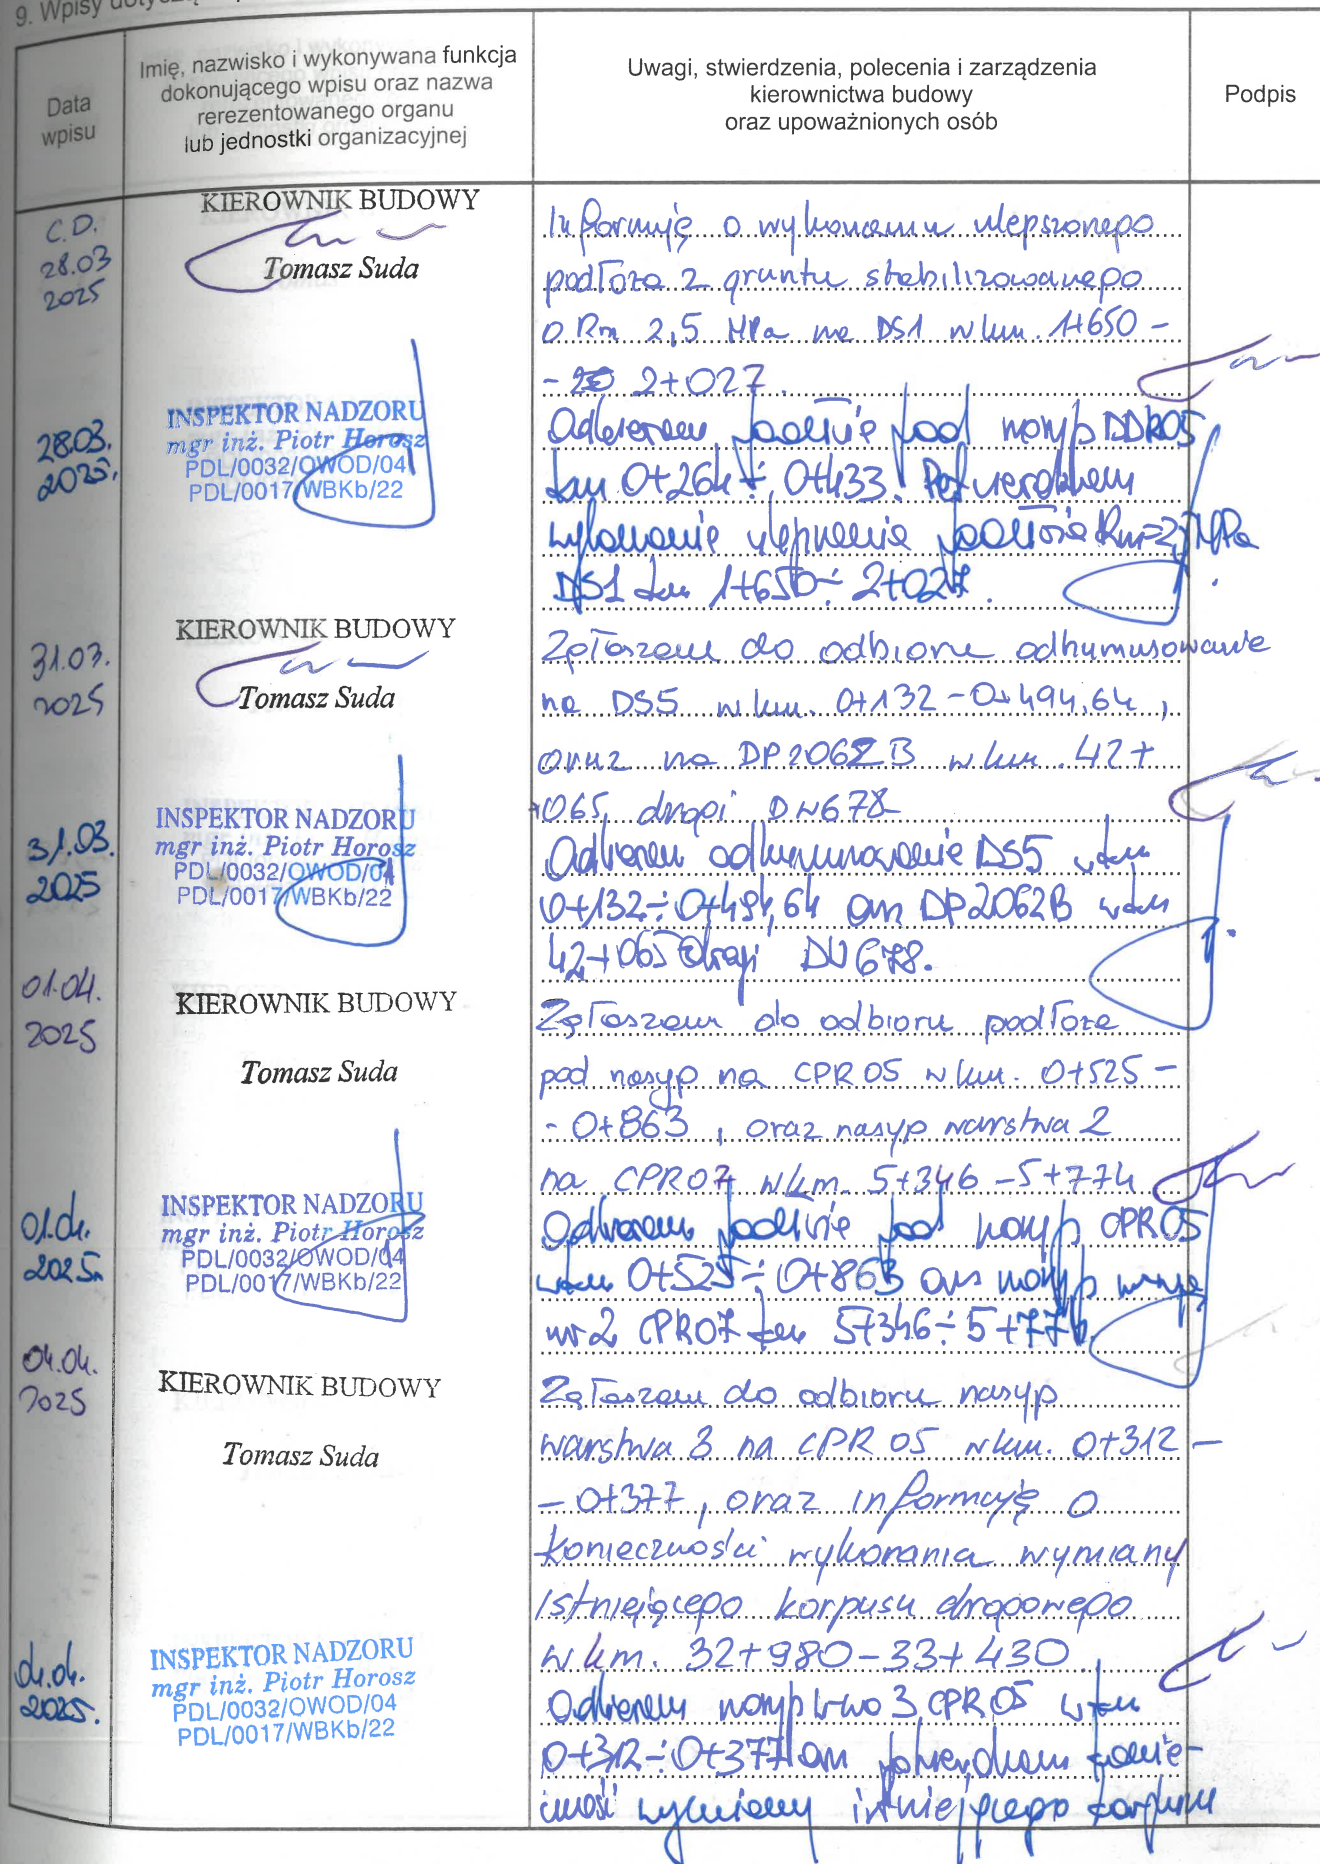 9. Wpisy
Data
wpisu
Imię, nazwisko i wykonywana funkcja
dokonującego wpisu oraz nazwa
rerezentowanego organu
lub jednostki organizacyjnej
Uwagi, stwierdzenia, polecenia i zarządzenia
kierownictwa budowy
oraz upoważnionych osób
Podpis
C.D.
28.03
2025
KIEROWNIK BUDOWY
Tomasz Suda
Informuję o wykonaniu ulepszonego
podłoża z gruntu stabilizowanego
o Rm 2,5 MPa na DS1 w km. 1+650 -
- 2+027.
28.03.
2025.
INSPEKTOR NADZORU
mgr inż. Piotr Horosz
PDL/0032/OWOD/04
PDL/0017/WBKb/22
Odbieram podłoże pod nasyp DDR05
km 0+264 ÷ 0+433. Potwierdzam
wykonanie ulepszenia podłoża Rm=2,5 MPa
DS1 km 1+650 ÷ 2+027.
31.03.
2025
KIEROWNIK BUDOWY
Tomasz Suda
Zgłaszam do odbioru odhumusowanie
na DS5 w km. 0+132 - 0+494,64,
oraz na DP2062B w km. 42+
+065 drogi DW678
31.03.
2025
INSPEKTOR NADZORU
mgr inż. Piotr Horosz
PDL/0032/OWOD/04
PDL/0017/WBKb/22
Odbieram odhumusowanie DS5 w km
0+132 ÷ 0+494,64 oraz DP2062B w km
42+065 drogi DW678.
01.04.
2025
KIEROWNIK BUDOWY
Tomasz Suda
Zgłaszam do odbioru podłoże
pod nasyp na CPR05 w km. 0+525 -
- 0+863, oraz nasyp warstwa 2
na CPR07 w km. 5+346 - 5+774
01.04.
2025r.
INSPEKTOR NADZORU
mgr inż. Piotr Horosz
PDL/0032/OWOD/04
PDL/0017/WBKb/22
Odbieram podłoże pod nasyp CPR05
w km 0+525 ÷ 0+863 oraz nasyp warstwa
nr 2 CPR07 km 5+346 ÷ 5+774.
04.04.
2025
KIEROWNIK BUDOWY
Tomasz Suda
Zgłaszam do odbioru nasyp
warstwa 3 na CPR 05 w km. 0+312 -
- 0+377, oraz informuję o
konieczności wykonania wymiany
istniejącego korpusu drogowego
w km. 32+980 - 33+430
04.04.
2025.
INSPEKTOR NADZORU
mgr inż. Piotr Horosz
PDL/0032/OWOD/04
PDL/0017/WBKb/22
Odbieram nasyp 3 CPR05 w km
0+312 ÷ 0+377 oraz potwierdzam konie-
czność wymiany istniejącego korpusu